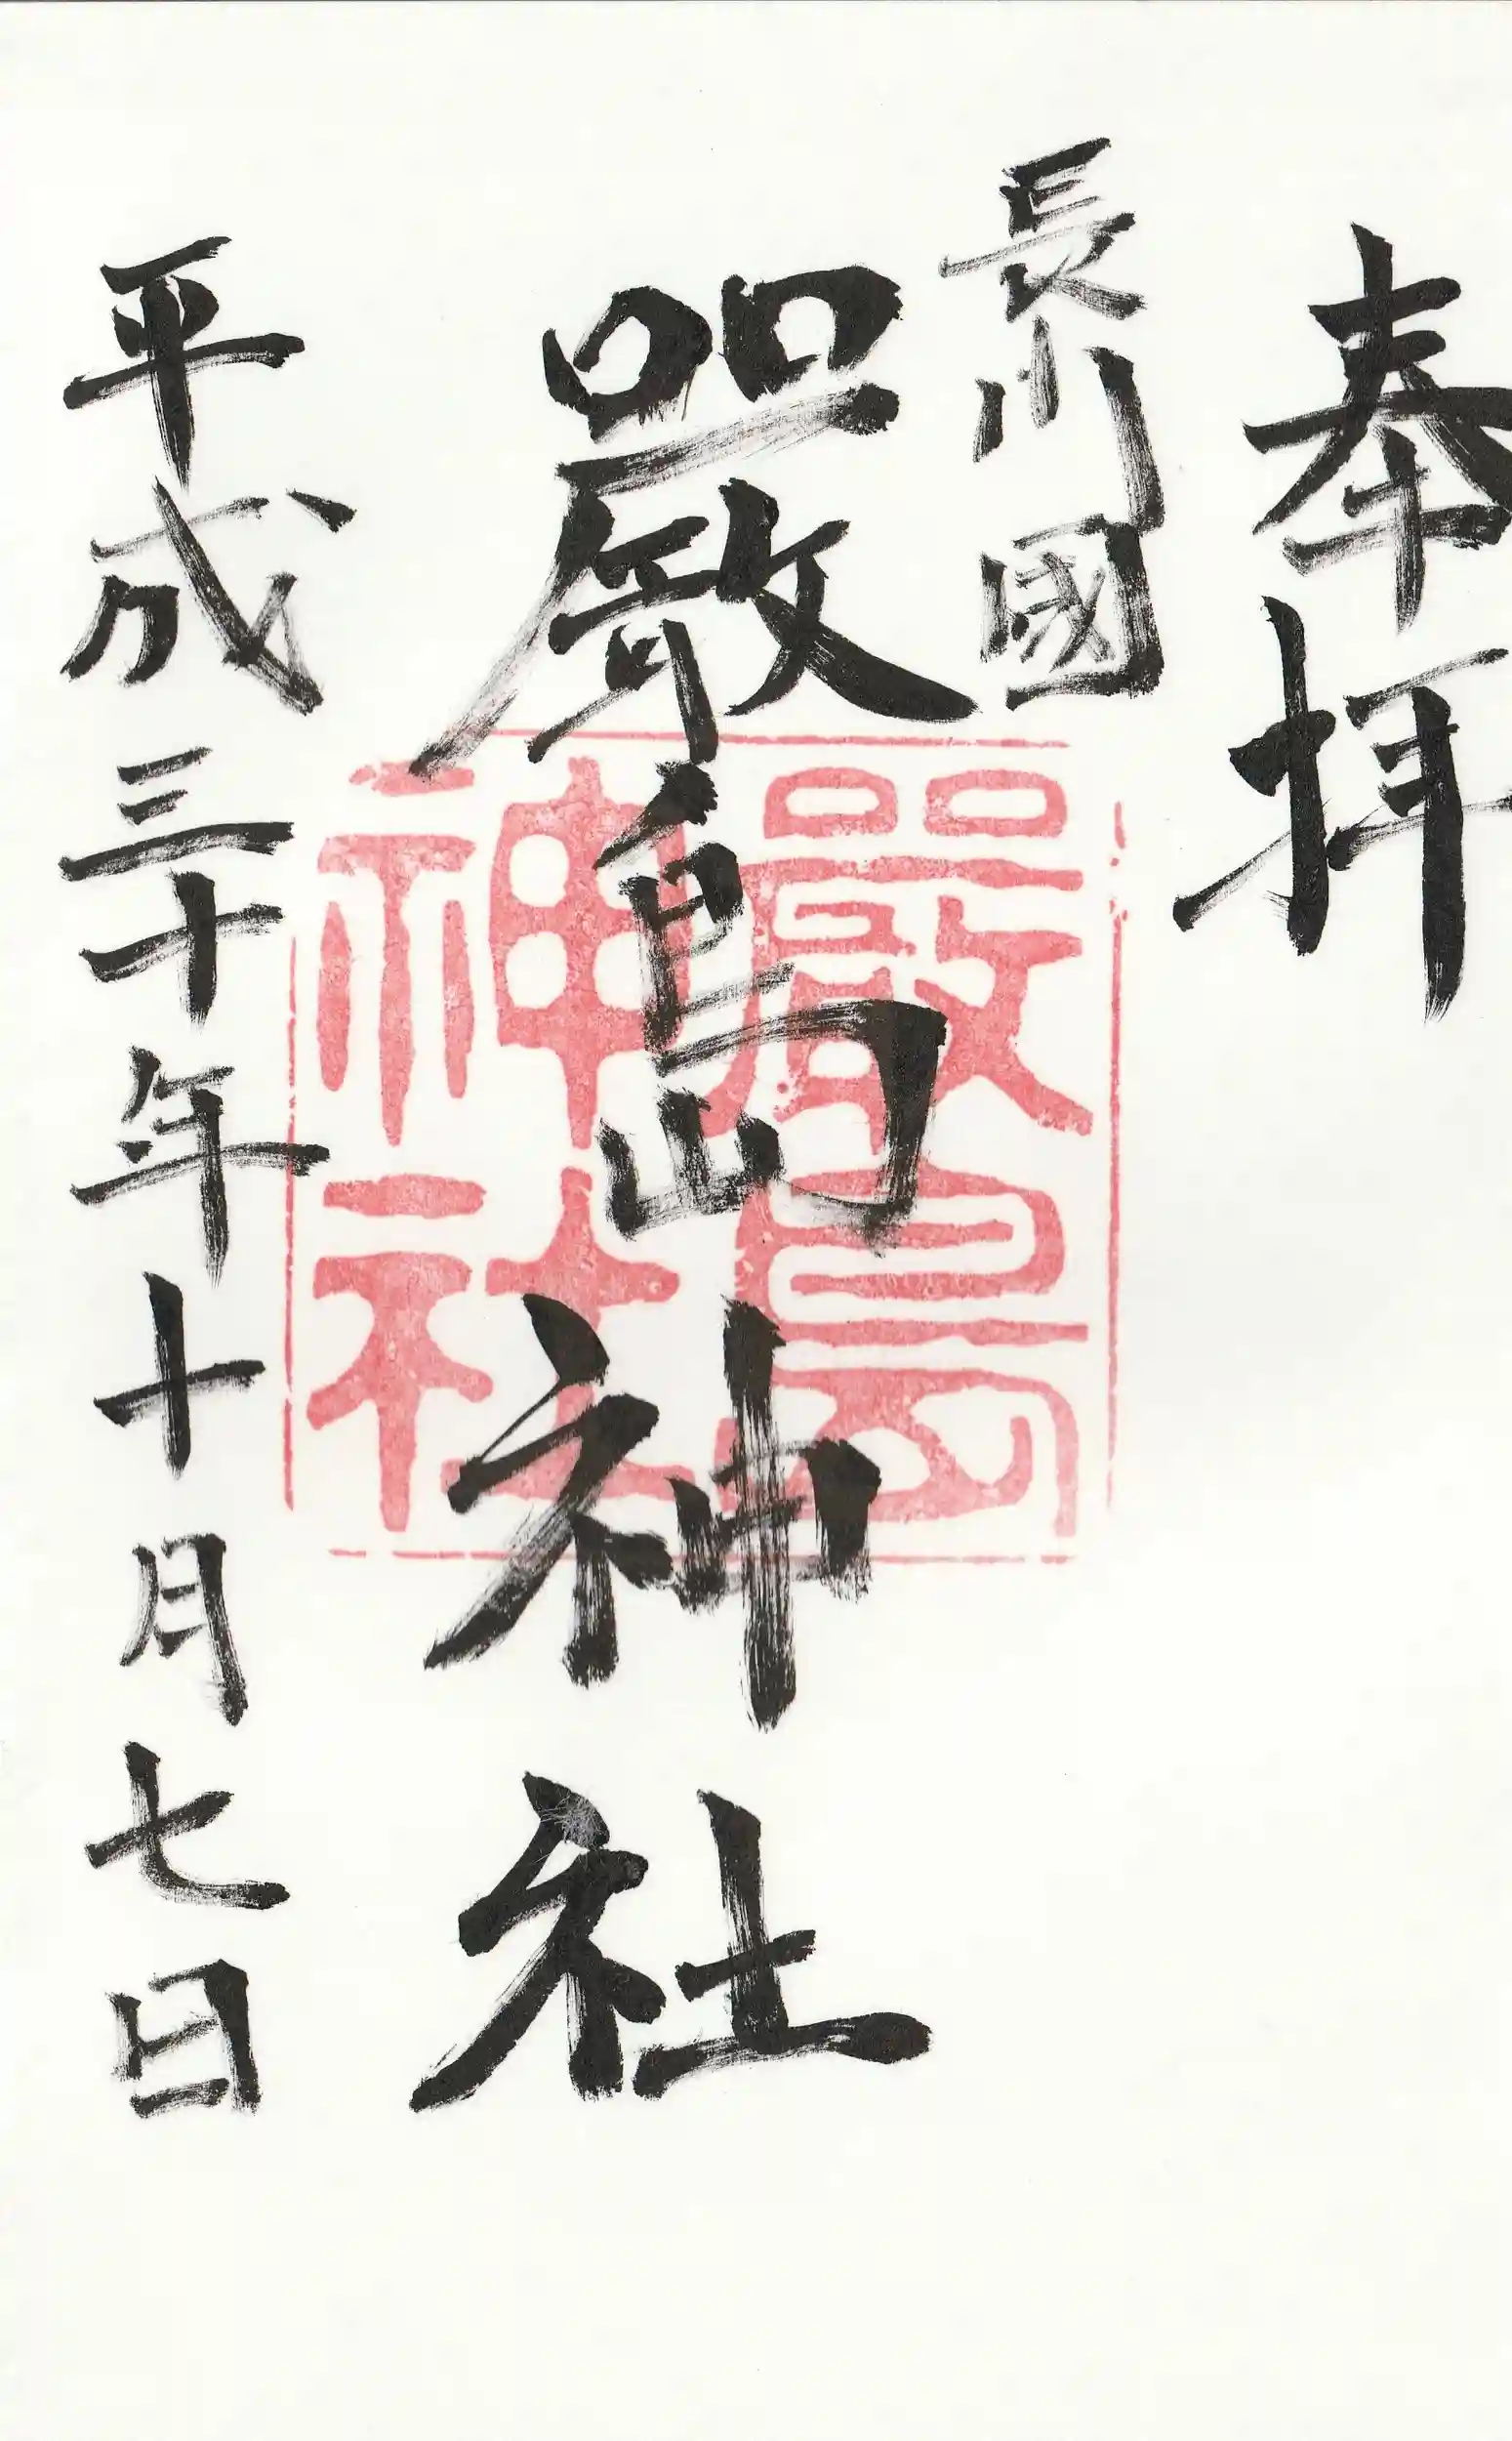 奉拝
長川國
嚴島神社
平成三十年十月七日
嚴島
神社